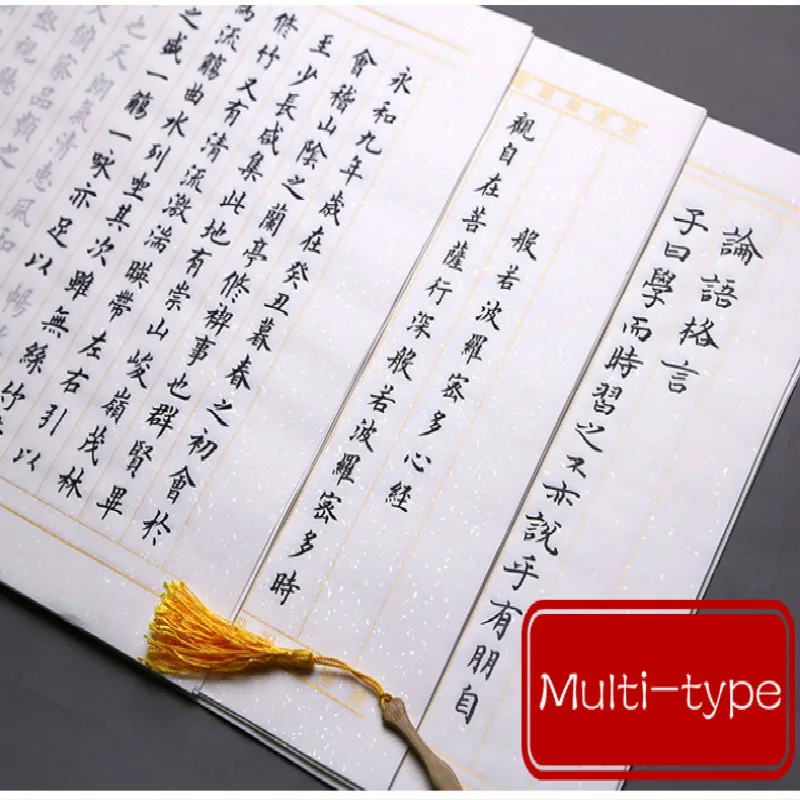 論語格言
子曰學而時習之不亦說乎有朋自
般若波羅蜜多心經
觀自在菩薩行深般若波羅蜜多時
永和九年歲在癸丑暮春之初會於
會稽山陰之蘭亭修禊事也群賢畢
至少長咸集此地有崇山峻嶺茂林
修竹又有清流激湍暎帶左右引以
為流觴曲水列坐其次雖無絲竹
之盛一觴一詠亦足以
也天朗氣清惠風和暢
大俯察品類之
視聽
Multi-type